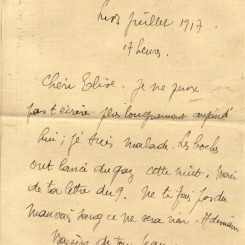 juillet 1917
17 heures.
Chère Elise. je ne peux
pas t'écrire plus longuement aujourd
hui; je suis malade. Les boches
ont lancé du gaz cette nuit. Merci
de ta lettre du 9. Ne te fais pas du
mauvais sang ce ne sera rien. A demain